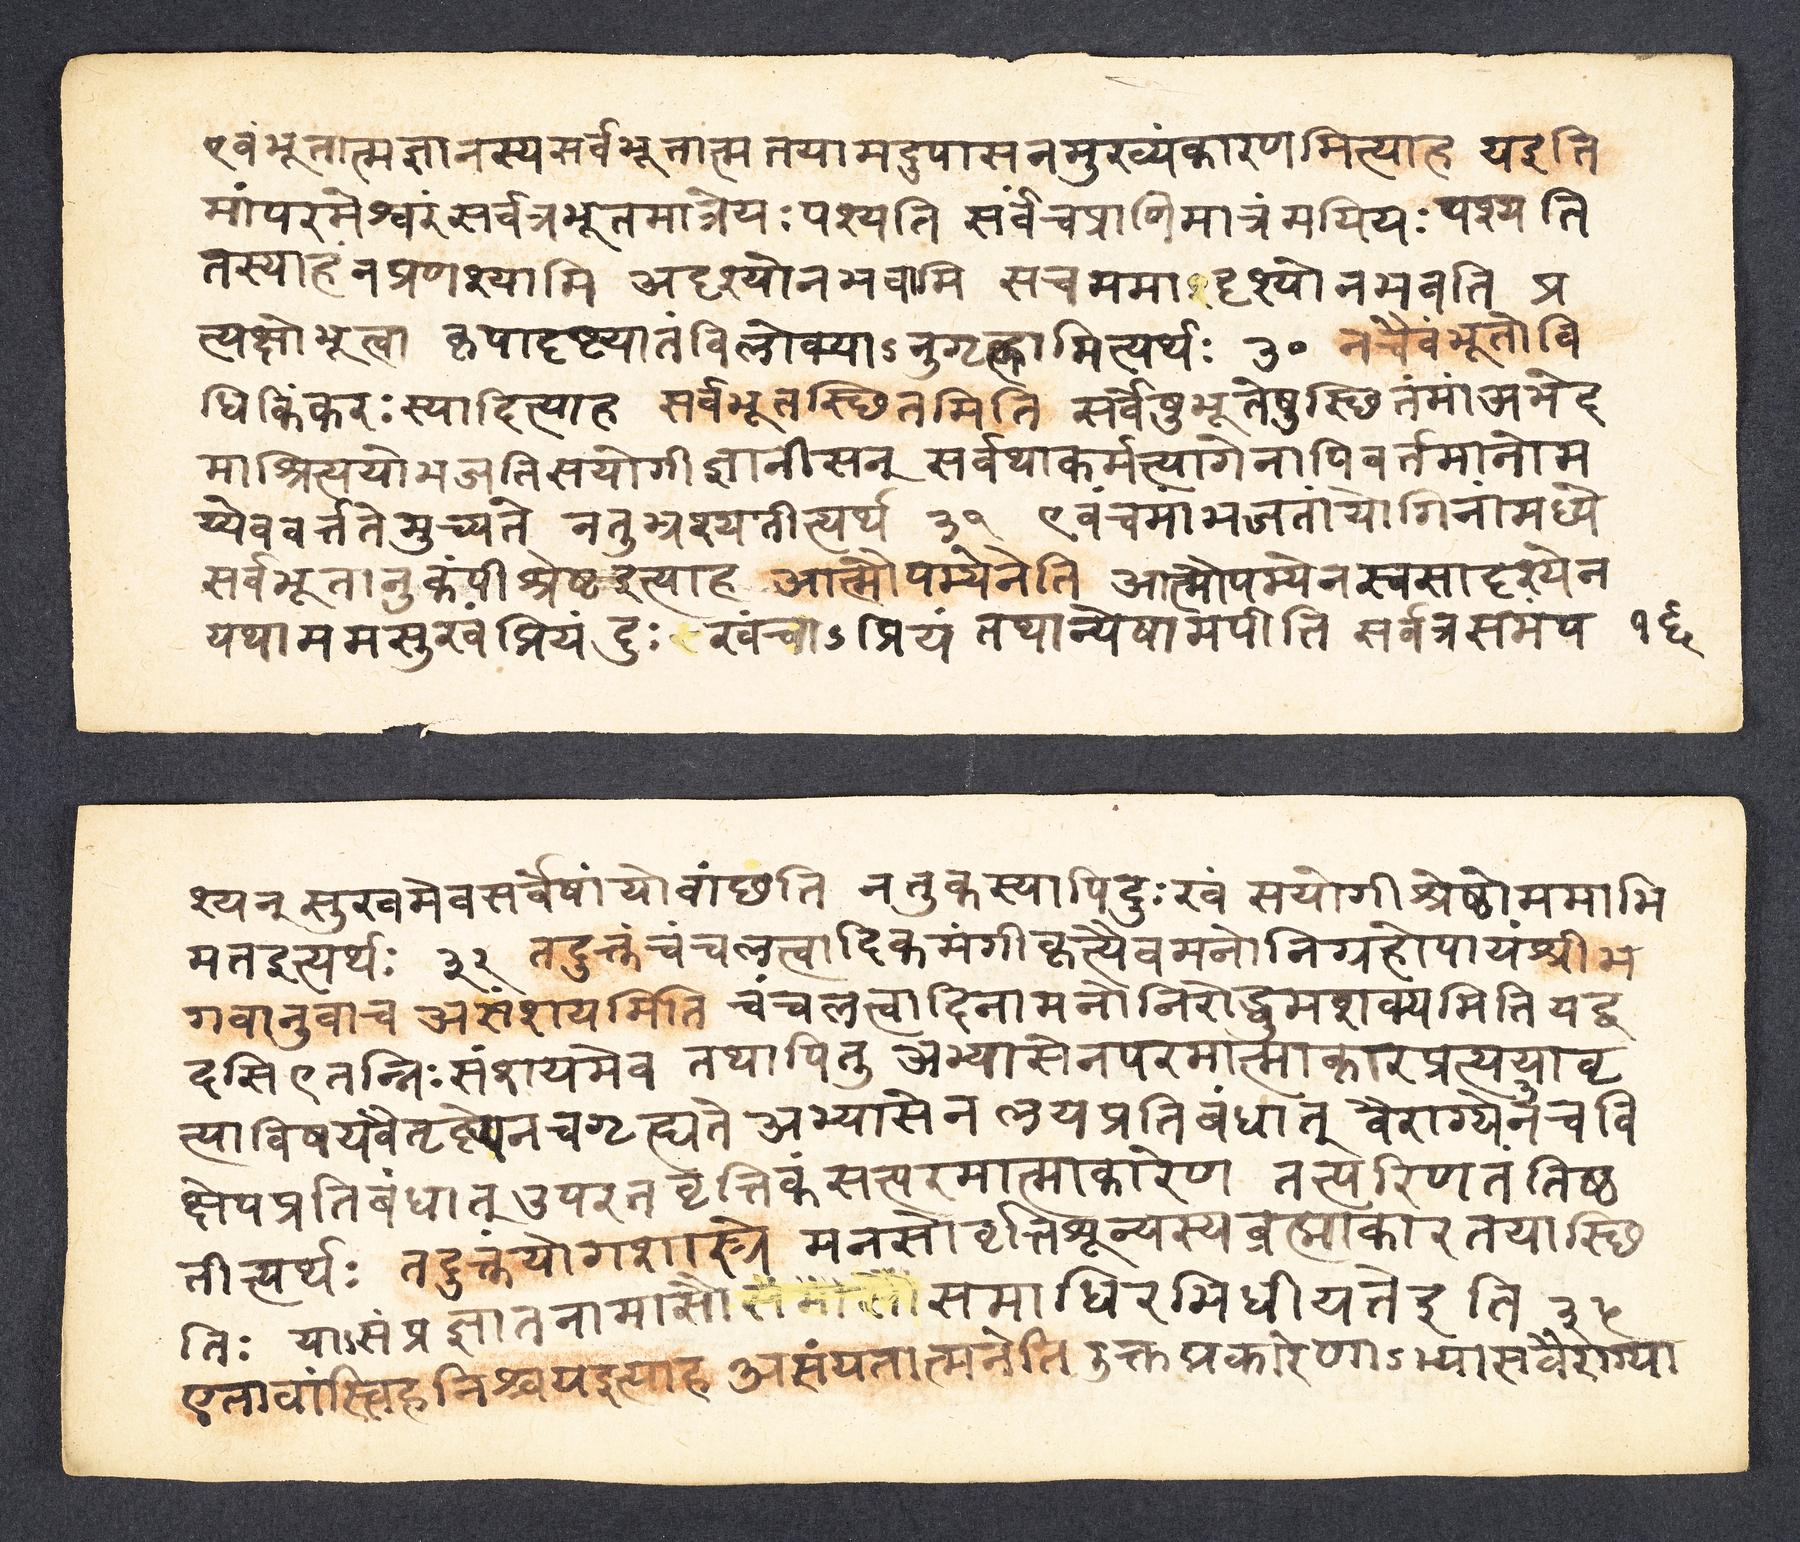 एवंभूतात्मज्ञानस्यसर्वभूतात्मतयामदुपासनमुख्यंकारणमित्याह यइति
मांपरमेश्वरंसर्वत्रभूतमात्रेयःपश्यति सर्वंचप्राणिमात्रंमयियःपश्यति
तस्याहंनप्रणश्यामि अदृश्योनभवामि सचममाऽदृश्योनभवति प्र
त्यक्षोभूत्वा कृपादृष्ट्यातंविलोक्याऽनुगृह्णामित्यर्थः ३० नचैवंभूतोवि
धिकिंकरःस्यादित्याह सर्वभूतस्थितमिति सर्वेषुभूतेषुस्थितंमांअभेद
माश्रित्ययोभजतिसयोगीज्ञानीसन् सर्वथाकर्मत्यागेनापिवर्तमानोम
य्येववर्त्ततेमुच्यते नतुभ्रश्यतीत्यर्थ ३१ एवंचमांभजतांयोगिनांमध्ये
सर्वभूतानुकंपीश्रेष्टइत्याह आत्मौपम्येनेति आत्मौपम्येनस्वसादृश्येन
यथाममसुखंप्रियंदुः खंचाऽप्रियं तथान्येषामपीति सर्वत्रसमंप १६
श्यन् सुखमेवसर्वेषांयोवांछति नतुकस्यापिदुःखं सयोगीश्रेष्ठोममाभि
मतइत्यर्थः ३२ तदुक्तंचंचलत्वादिकमंगीकृत्यैवमनोनिग्रहोपायंश्रीभ
गवानुवाच असंशयमिति चंचलत्वादिनामनोनिरोद्धुमशक्यमितियद्व
दसिएतन्निःसंशयमेव तथापितु अभ्यासेनपरमात्माकारप्रत्ययावृ
त्याविषयवैतृष्ण्येनचगृह्यते अभ्यासेन लयप्रतिबंधात् वैराग्येनचवि
क्षेपप्रतिबंधात् उपरतवृत्तिकंसत्परमात्माकारेण तत्परिणतंतिष्ठ
तीत्यर्थः तदुक्तंयोगशास्त्रे मनसोवृत्तिशून्यस्यब्रह्माकारतयास्थि
तिः याऽसंप्रज्ञातनामासौ समाधिरभिधीयतेइति ३५
एतावांस्त्विहनिश्चयइत्याह असंयतात्मनेति उक्तप्रकारेणाऽभ्यासवैराग्या